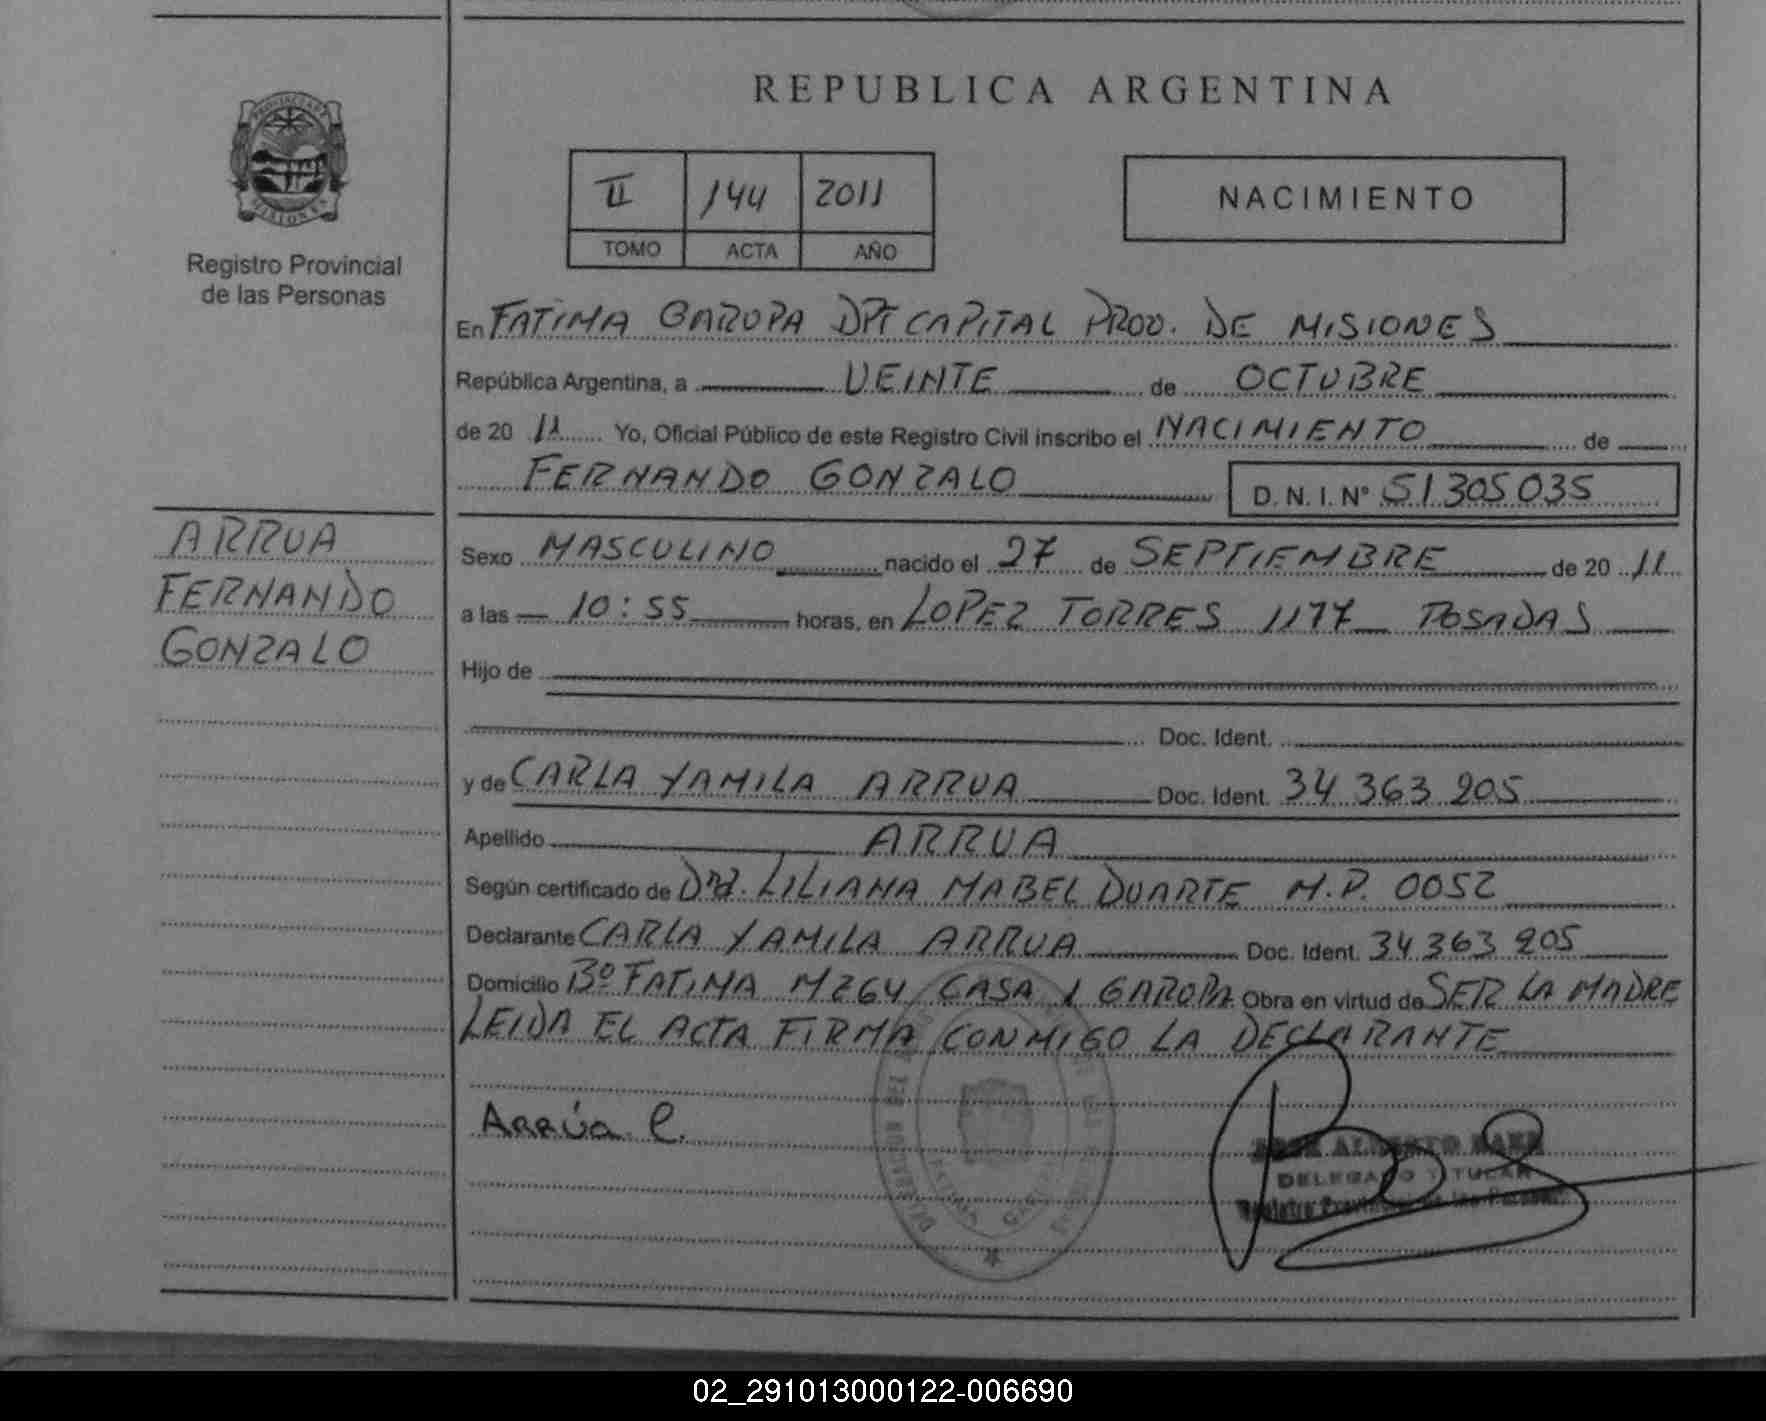 REPUBLICA ARGENTINA
PROVINCIA DE
MISIONES
Registro Provincial
de las Personas
II 144 2011
TOMO ACTA AÑO
NACIMIENTO
En FATIMA GARUPA DPT CAPITAL PROV. DE MISIONES
República Argentina, a VEINTE de OCTUBRE
de 20 11 Yo, Oficial Público de este Registro Civil inscribo el NACIMIENTO de
FERNANDO GONZALO D. N. I. N° 51305035
ARRUA
FERNANDO
GONZALO
Sexo MASCULINO nacido el 27 de SEPTIEMBRE de 20 11
a las 10:55 horas, en LOPEZ TORRES 1177 POSADAS
Hijo de
Doc. Ident.
y de CARLA YAMILA ARRUA Doc. Ident. 34 363 205
Apellido ARRUA
Según certificado de Dra. LILIANA MABEL DUARTE M.P. 0052
Declarante CARLA YAMILA ARRUA Doc. Ident. 34 363 205
Domicilio Bº FATIMA MZ64 CASA 1 GARUPA Obra en virtud de SER LA MADRE
LEIDA EL ACTA FIRMA CONMIGO LA DECLARANTE
Arrúa C.
JOSE ALBERTO
DELEGADO TITULAR
Registro Provincial de las Personas
02_291013000122-006690